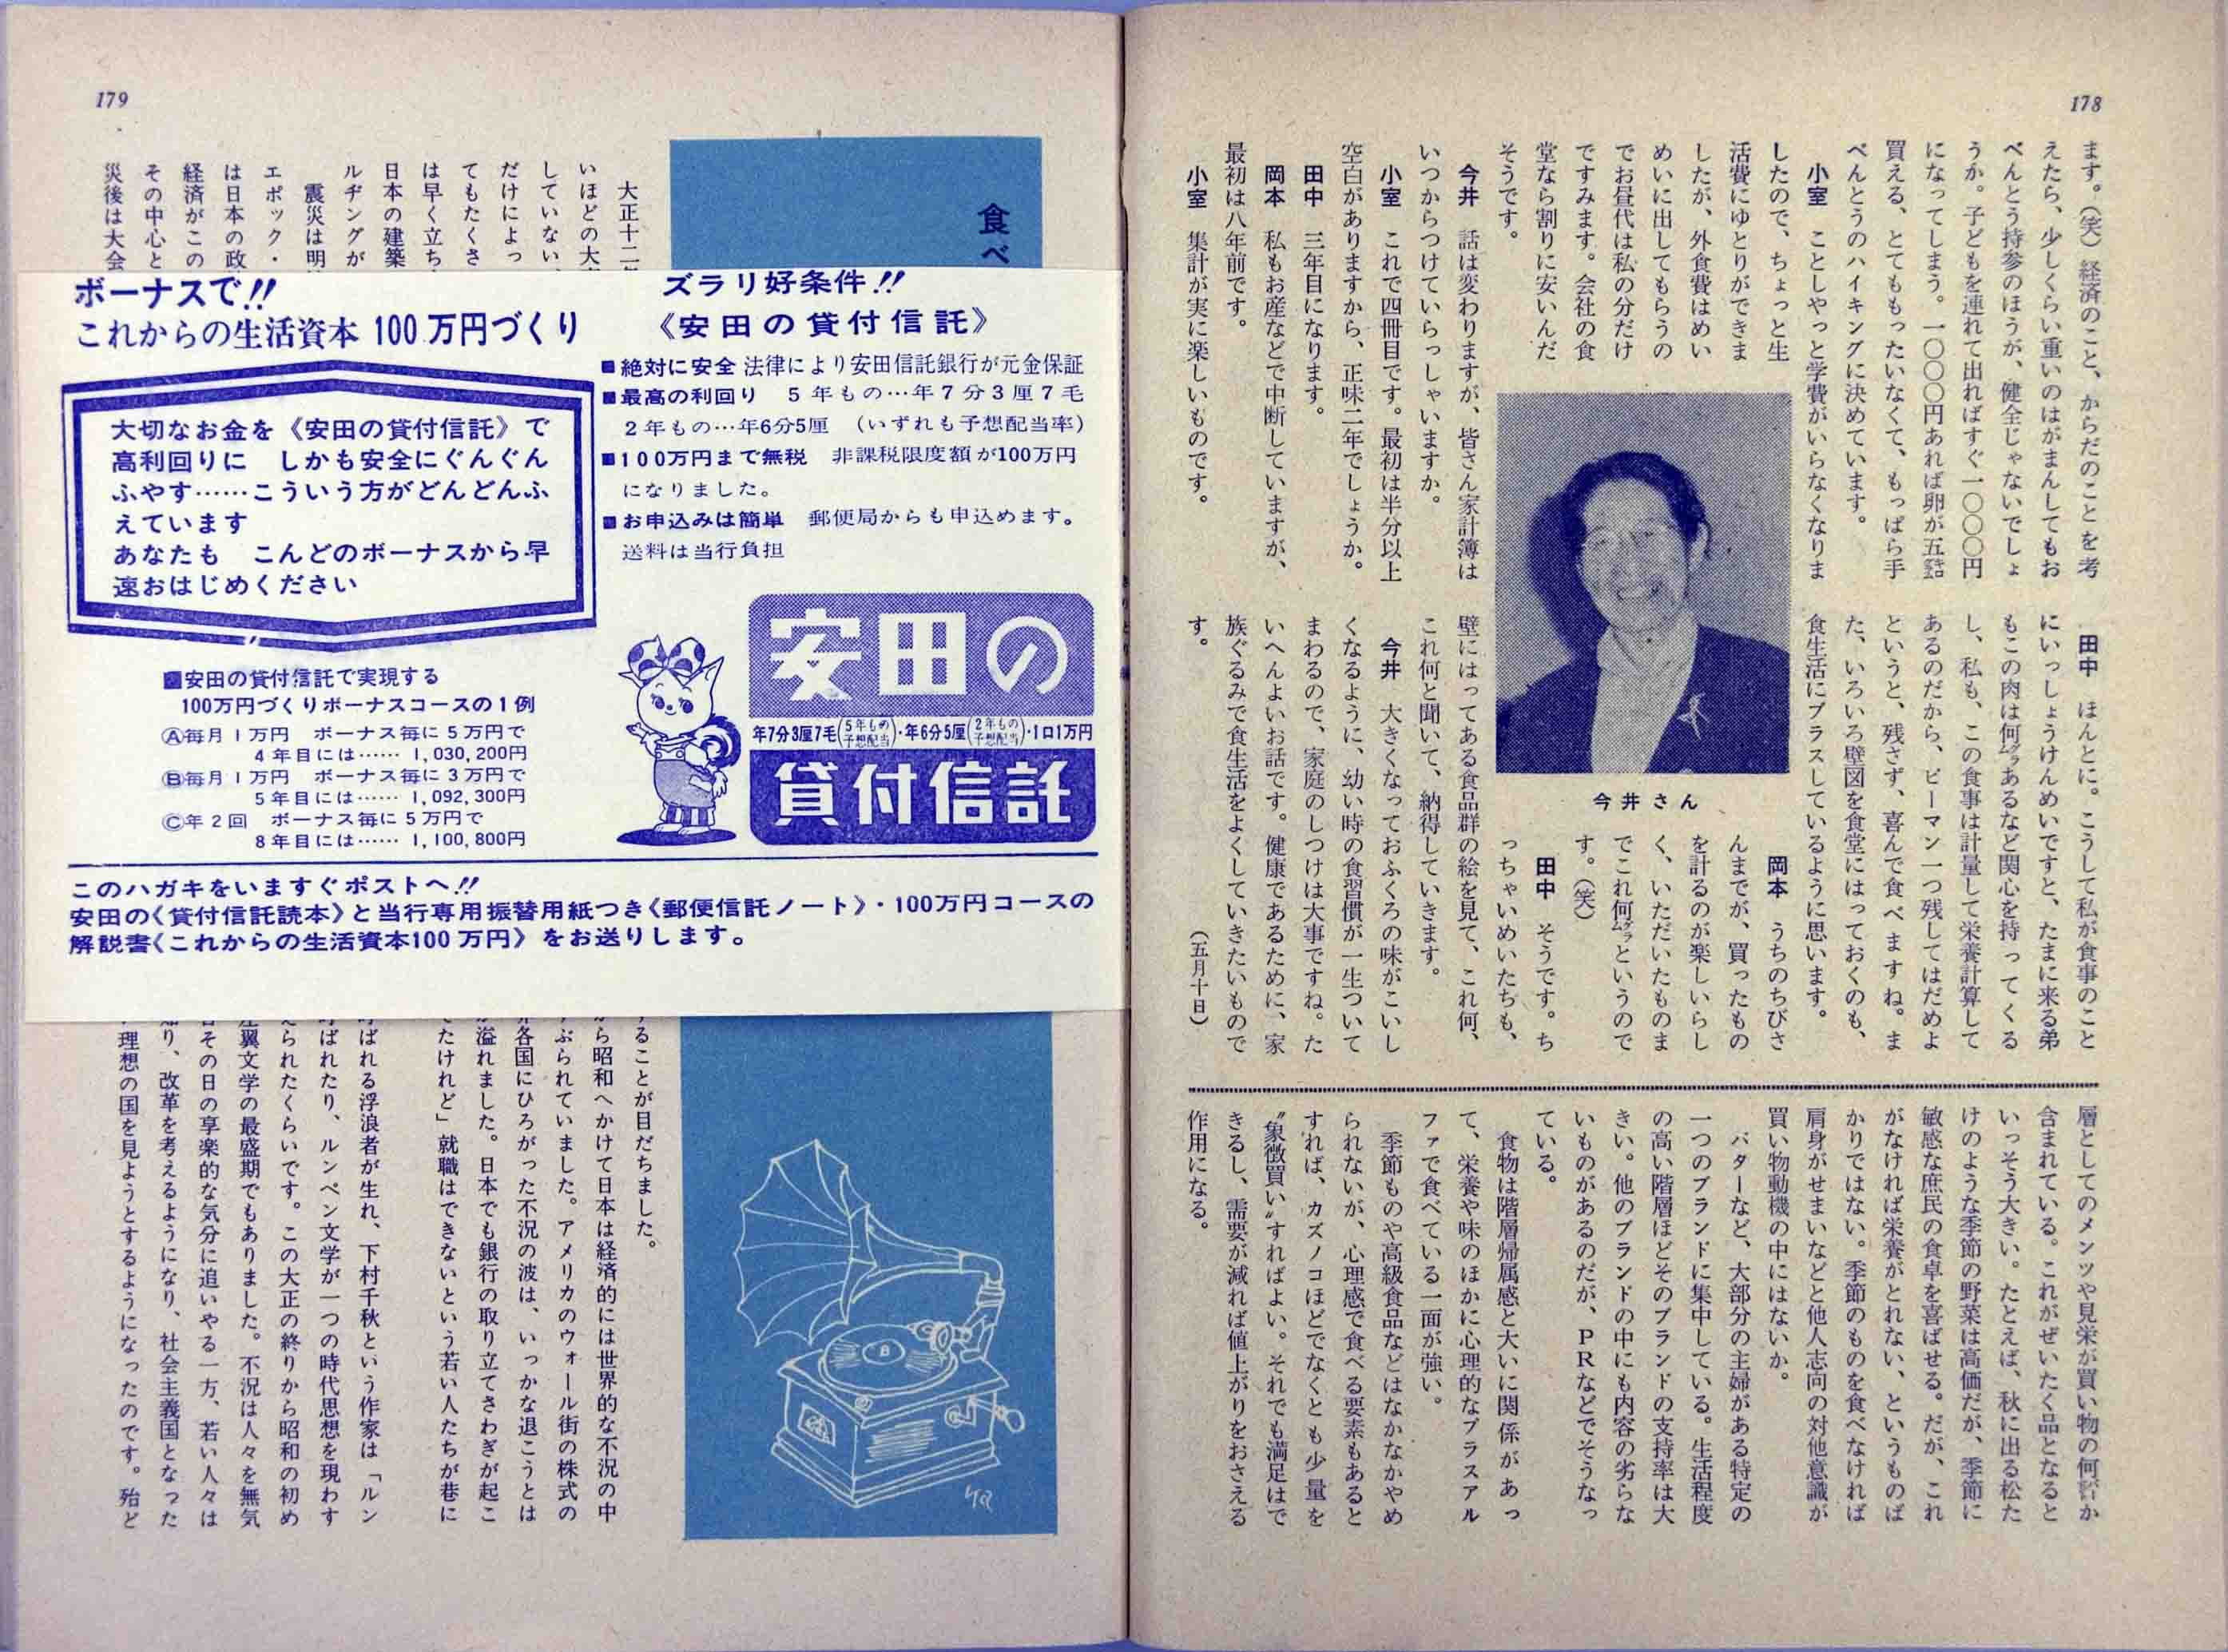 178
ます。(笑)経済のこと、からだのことを考
えたら、少しくらい重いのはがまんしてもお
べんとう持参のほうが、健全じゃないでしょ
うか。子どもを連れて出ればすぐ一〇〇〇円
になってしまう。一〇〇〇円あれば卵が五
買える、とてももったいなくて、もっぱら手
べんとうのハイキングに決めています。
小室 ことしやっと学費がいらなくなりま
したので、ちょっと生
活費にゆとりができま
したが、外食費はめい
めいに出してもらうの
でお昼代は私の分だけ
ですみます。会社の食
堂なら割りに安いんだ
そうです。
今井 話は変わりますが、皆さん家計簿は
いつからつけていらっしゃいますか。
小室 これで四冊目です。最初は半分以上
空白がありますから、正味二年でしょうか。
田中 三年目になります。
岡本 私もお産などで中断していますが、
最初は八年前です。
小室 集計が実に楽しいものです。
今井さん
田中 ほんとに。こうして私が食事のこと
にいっしょうけんめいですと、たまに来る弟
もこの肉は何グラあるなど関心を持ってくる
し、私も、この食事は計量して栄養計算して
あるのだから、ピーマン一つ残してはだめよ
というと、残さず、喜んで食べますね。ま
た、いろいろ壁図を食堂にはっておくのも、
食生活にプラスしているように思います。
岡本 うちのちびさ
んまでが、買ったもの
を計るのが楽しいらし
く、いただいたものま
でこれ何グラというので
す。(笑)
田中 そうです。ち
っちゃいめいたちも、
壁にはってある食品群の絵を見て、これ何、
これ何と聞いて、納得していきます。
今井 大きくなっておふくろの味がこいし
くなるように、幼い時の食習慣が一生ついて
まわるので、家庭のしつけは大事ですね。た
いへんよいお話です。健康であるために、家
族ぐるみで食生活をよくしていきたいもので
す。
(五月十日)
層としてのメンツや見栄が買い物の何計か
含まれている。これがぜいたく品となると
いっそう大きい。たとえば、秋に出る松た
けのような季節の野菜は高価だが、季節に
敏感な庶民の食卓を喜ばせる。だが、これ
がなければ栄養がとれない、というものば
かりではない。季節のものを食べなければ
肩身がせまいなどと他人志向の対他意識が
買い物動機の中にはないか。
バターなど、大部分の主婦がある特定の
一つのブランドに集中している。生活程度
の高い階層ほどそのブランドの支持率は大
きい。他のブランドの中にも内容の劣らな
いものがあるのだが、PRなどでそうなっ
ている。
食物は階層帰属感と大いに関係があっ
て、栄養や味のほかに心理的なプラスアル
ファで食べている一面が強い。
季節ものや高級食品などはなかなかやめ
られないが、心理感で食べる要素もあると
すれば、カズノコほどでなくとも少量を
〝象徴買い〟すればよい。それでも満足はで
きるし、需要が減れば値上がりをおさえる
作用になる。
179
食べ
大正十二年
いほどの大
していない
だけによっ
てもたくさ
は早く立ち
日本の建築
ルヂングが
震災は明
エポック・
は日本の政
経済がこの
その中心と
災後は大会
ることが目だちました。
から昭和へかけて日本は経済的には世界的な不況の中
ぶられていました。アメリカのウォール街の株式の
界各国にひろがった不況の波は、いっかな退こうとは
が溢れました。日本でも銀行の取り立てさわぎが起こ
たけれど」就職はできないという若い人たちが巷に
ばれる浮浪者が生れ、下村千秋という作家は「ルン
ばれたり、ルンペン文学が一つの時代思想を現わす
られたくらいです。この大正の終りから昭和の初め
翼文学の最盛期でもありました。不況は人々を無気
その日の享楽的な気分に追いやる一方、若い人々は
り、改革を考えるようになり、社会主義国となった
理想の国を見ようとするようになったのです。殆ど
ボーナスで!!
これからの生活資本 100万円づくり
大切なお金を《安田の貸付信託》で
高利回りに しかも安全にぐんぐん
ふやす……こういう方がどんどんふ
えています
あなたも こんどのボーナスから早
速おはじめください
■安田の貸付信託で実現する
100万円づくりボーナスコースの1例
Ⓐ毎月1万円 ボーナス毎に5万円で
4年目には…… 1,030,200円
Ⓑ毎月1万円 ボーナス毎に3万円で
5年目には…… 1,092,300円
Ⓒ年2回 ボーナス毎に5万円で
8年目には…… 1,100,800円
ズラリ好条件!!
《安田の貸付信託》
■絶対に安全 法律により安田信託銀行が元金保証
■最高の利回り 5年もの…年7分3厘7毛
2年もの…年6分5厘 (いずれも予想配当率)
■100万円まで無税 非課税限度額が100万円
になりました。
■お申込みは簡単 郵便局からも申込めます。
送料は当行負担
安田の
年7分3厘7毛(5年もの予想配当)・年6分5厘(2年もの予想配当)・1口1万円
貸付信託
このハガキをいますぐポストへ!!
安田の《貸付信託読本》と当行専用振替用紙つき《郵便信託ノート》・100万円コースの
解説書《これからの生活資本100万円》をお送りします。